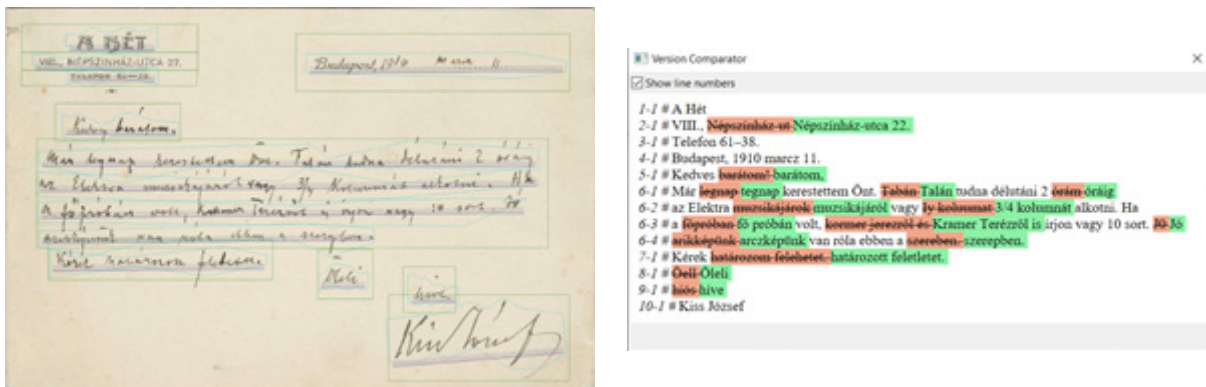 A HÉT
VIII., NÉPSZINHÁZ-UTCA 22.
TELEFON 61—38.
Budapest, 1910 marcz 11.
Kedves barátom,
Már tegnap kerestettem Önt. Talán tudna délutáni 2 óráig
az Elektra muzsikájáról vagy 3/4 kolumnát alkotni. Ha
a fő próbán volt, Kramer Terézről is irjon vagy 10 sort. Jó
arczképünk van róla ebben a szerepben.
Kérek határozott feleletet.
Öleli
hive
Kiss József
Version Comparator
Show line numbers
1-1 # A Hét
2-1 # VIII., Népszinház-ut Népszinház-utca 22.
3-1 # Telefon 61–38.
4-1 # Budapest, 1910 marcz 11.
5-1 # Kedves barátom! barátom,
6-1 # Már legnap tegnap kerestettem Önt. Tabán Talán tudna délutáni 2 órám óráig
6-2 # az Elektra muzsikájárok muzsikájáról vagy ly kolumat 3/4 kolumnát alkotni. Ha
6-3 # a főpróban fő próbán volt, kormer jerezról és Kramer Terézről is irjon vagy 10 sort. Jó
6-4 # arikképünk arczképünk van róla ebben a szereben. szerepben.
7-1 # Kérek határozom felehetet. határozott feletletet.
8-1 # Öell Öleli
9-1 # hiós hive
10-1 # Kiss József